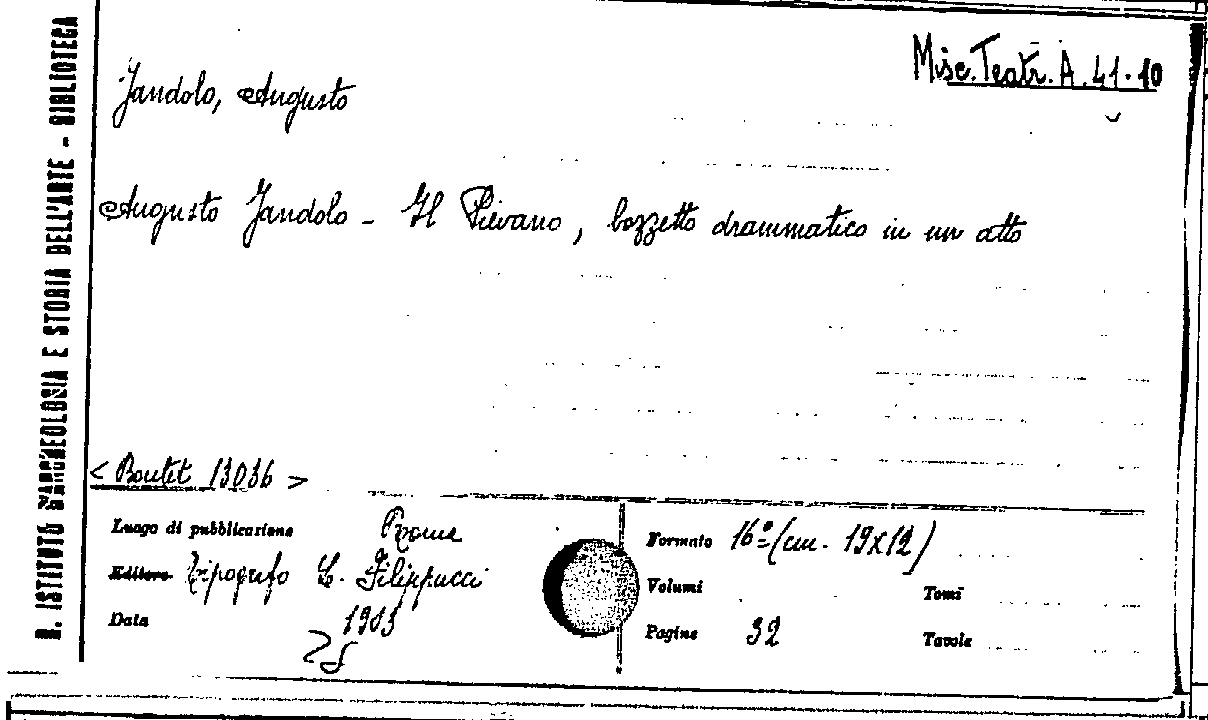 R. ISTITUTO D'ARCHEOLOGIA E STORIA DELL'ARTE - BIBLIOTECA
Misc. Teatr. A. 41.10
Jandolo, Augusto
Augusto Jandolo - Il Pievano, bozzetto drammatico in un atto
< Boutet 13036 >
Luogo di pubblicazione Roma
Editore Tipografo L. Filippucci
Data 1903
Formato 16º (cm. 19x12)
Volumi
Tomi
Pagine 32
Tavole